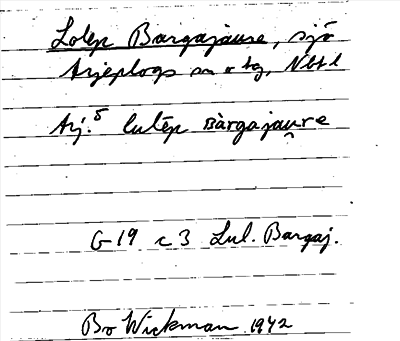 Lolep Bargajaure, sjö
Arjeplogs sn o tg, Nbtl
Arj.⁵ lulēp Bàrgajau̯re
G 19 c 3 Lul. Bargaj.
Bo Wickman 1942